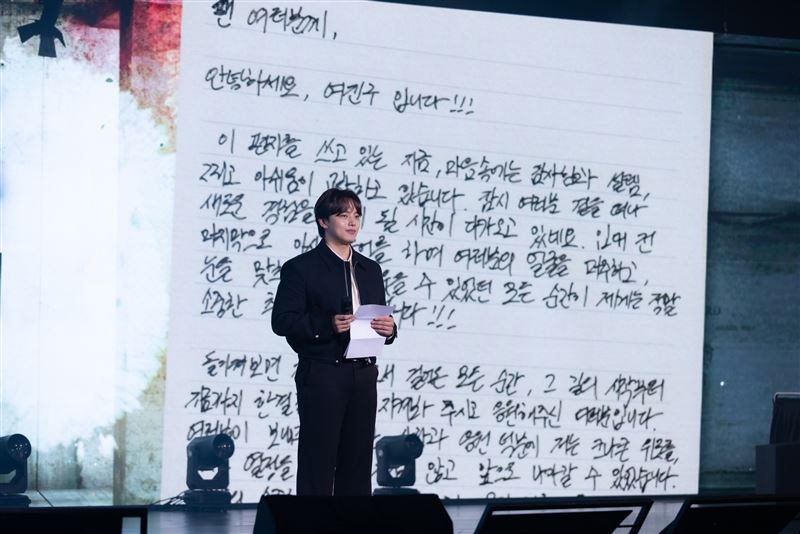 팬 여러분께,
안녕하세요, 여진구 입니다!!!
이 편지를 쓰고 있는 지금, 마음속에는 감사함과 설렘,
그리고 아쉬움이 하고 있습니다. 잠시 여러분 곁을 떠나
새로운 경험을 될 시간이 다가오고 있네요. 입대 전
마지막으로 아시아 를 하며 여러분의 얼굴을 마주하고,
눈을 맞 수 있었던 모든 순간이 제게는 정말
소중한 니다!!!
돌이켜보면 걸어온 모든 순간, 그 길의 시작부터
지금까지 한결 주시고 응원해주신 여러분입니다.
여러분이 보내 응원 덕분에 저는 크나큰 위로를,
열정을 않고 앞으로 나아갈 수 있었습니다.